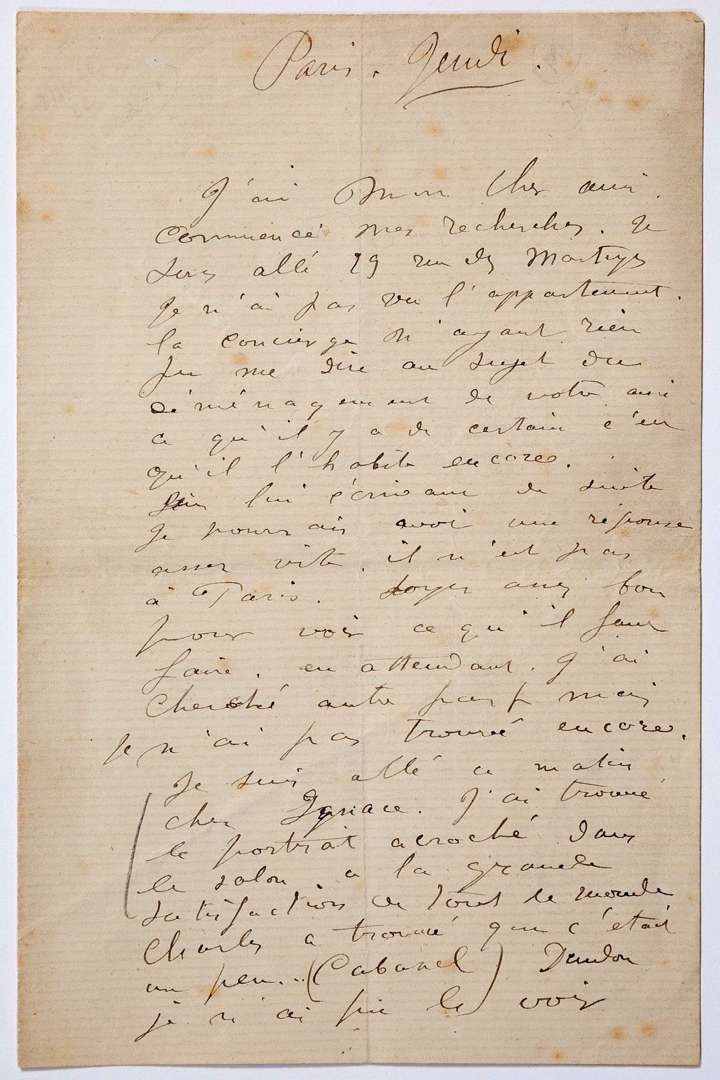 Paris. Jeudi.
J'ai Mon Cher ami.
commencé mes recherches. Je
suis allé 29 rue des Martyrs
je n'ai pas vu l'appartement.
la concierge n'ayant rien
pu me dire au sujet du
déménagement de votre ami
ce qu'il y a de certain c'est
qu'il l'habite encore.
lui écrivant de suite
je pourrais avoir une réponse
assez vite. il n'est pas
à Paris. Soyez assez bon
pour voir ce qu'il faut
faire. en attendant. J'ai
cherché autre part mais
je n'ai pas trouvé encore.
Je suis allé ce matin
chez Ignace. J'ai trouvé
le portrait acroché dans
le salon a la grande
satisfaction de tout le monde
Charles a trouvé que c'était
un peu... (Cabanel)
je n'ai pu le voir